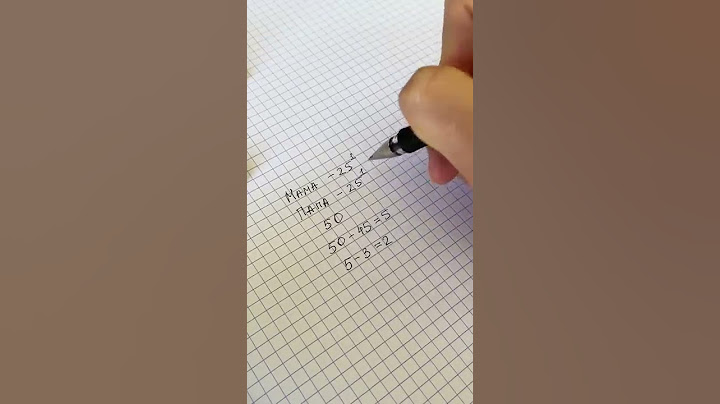 Мама - 25¹
Папа - 25¹
50
50 - 45 = 5
5 - 3 = 2